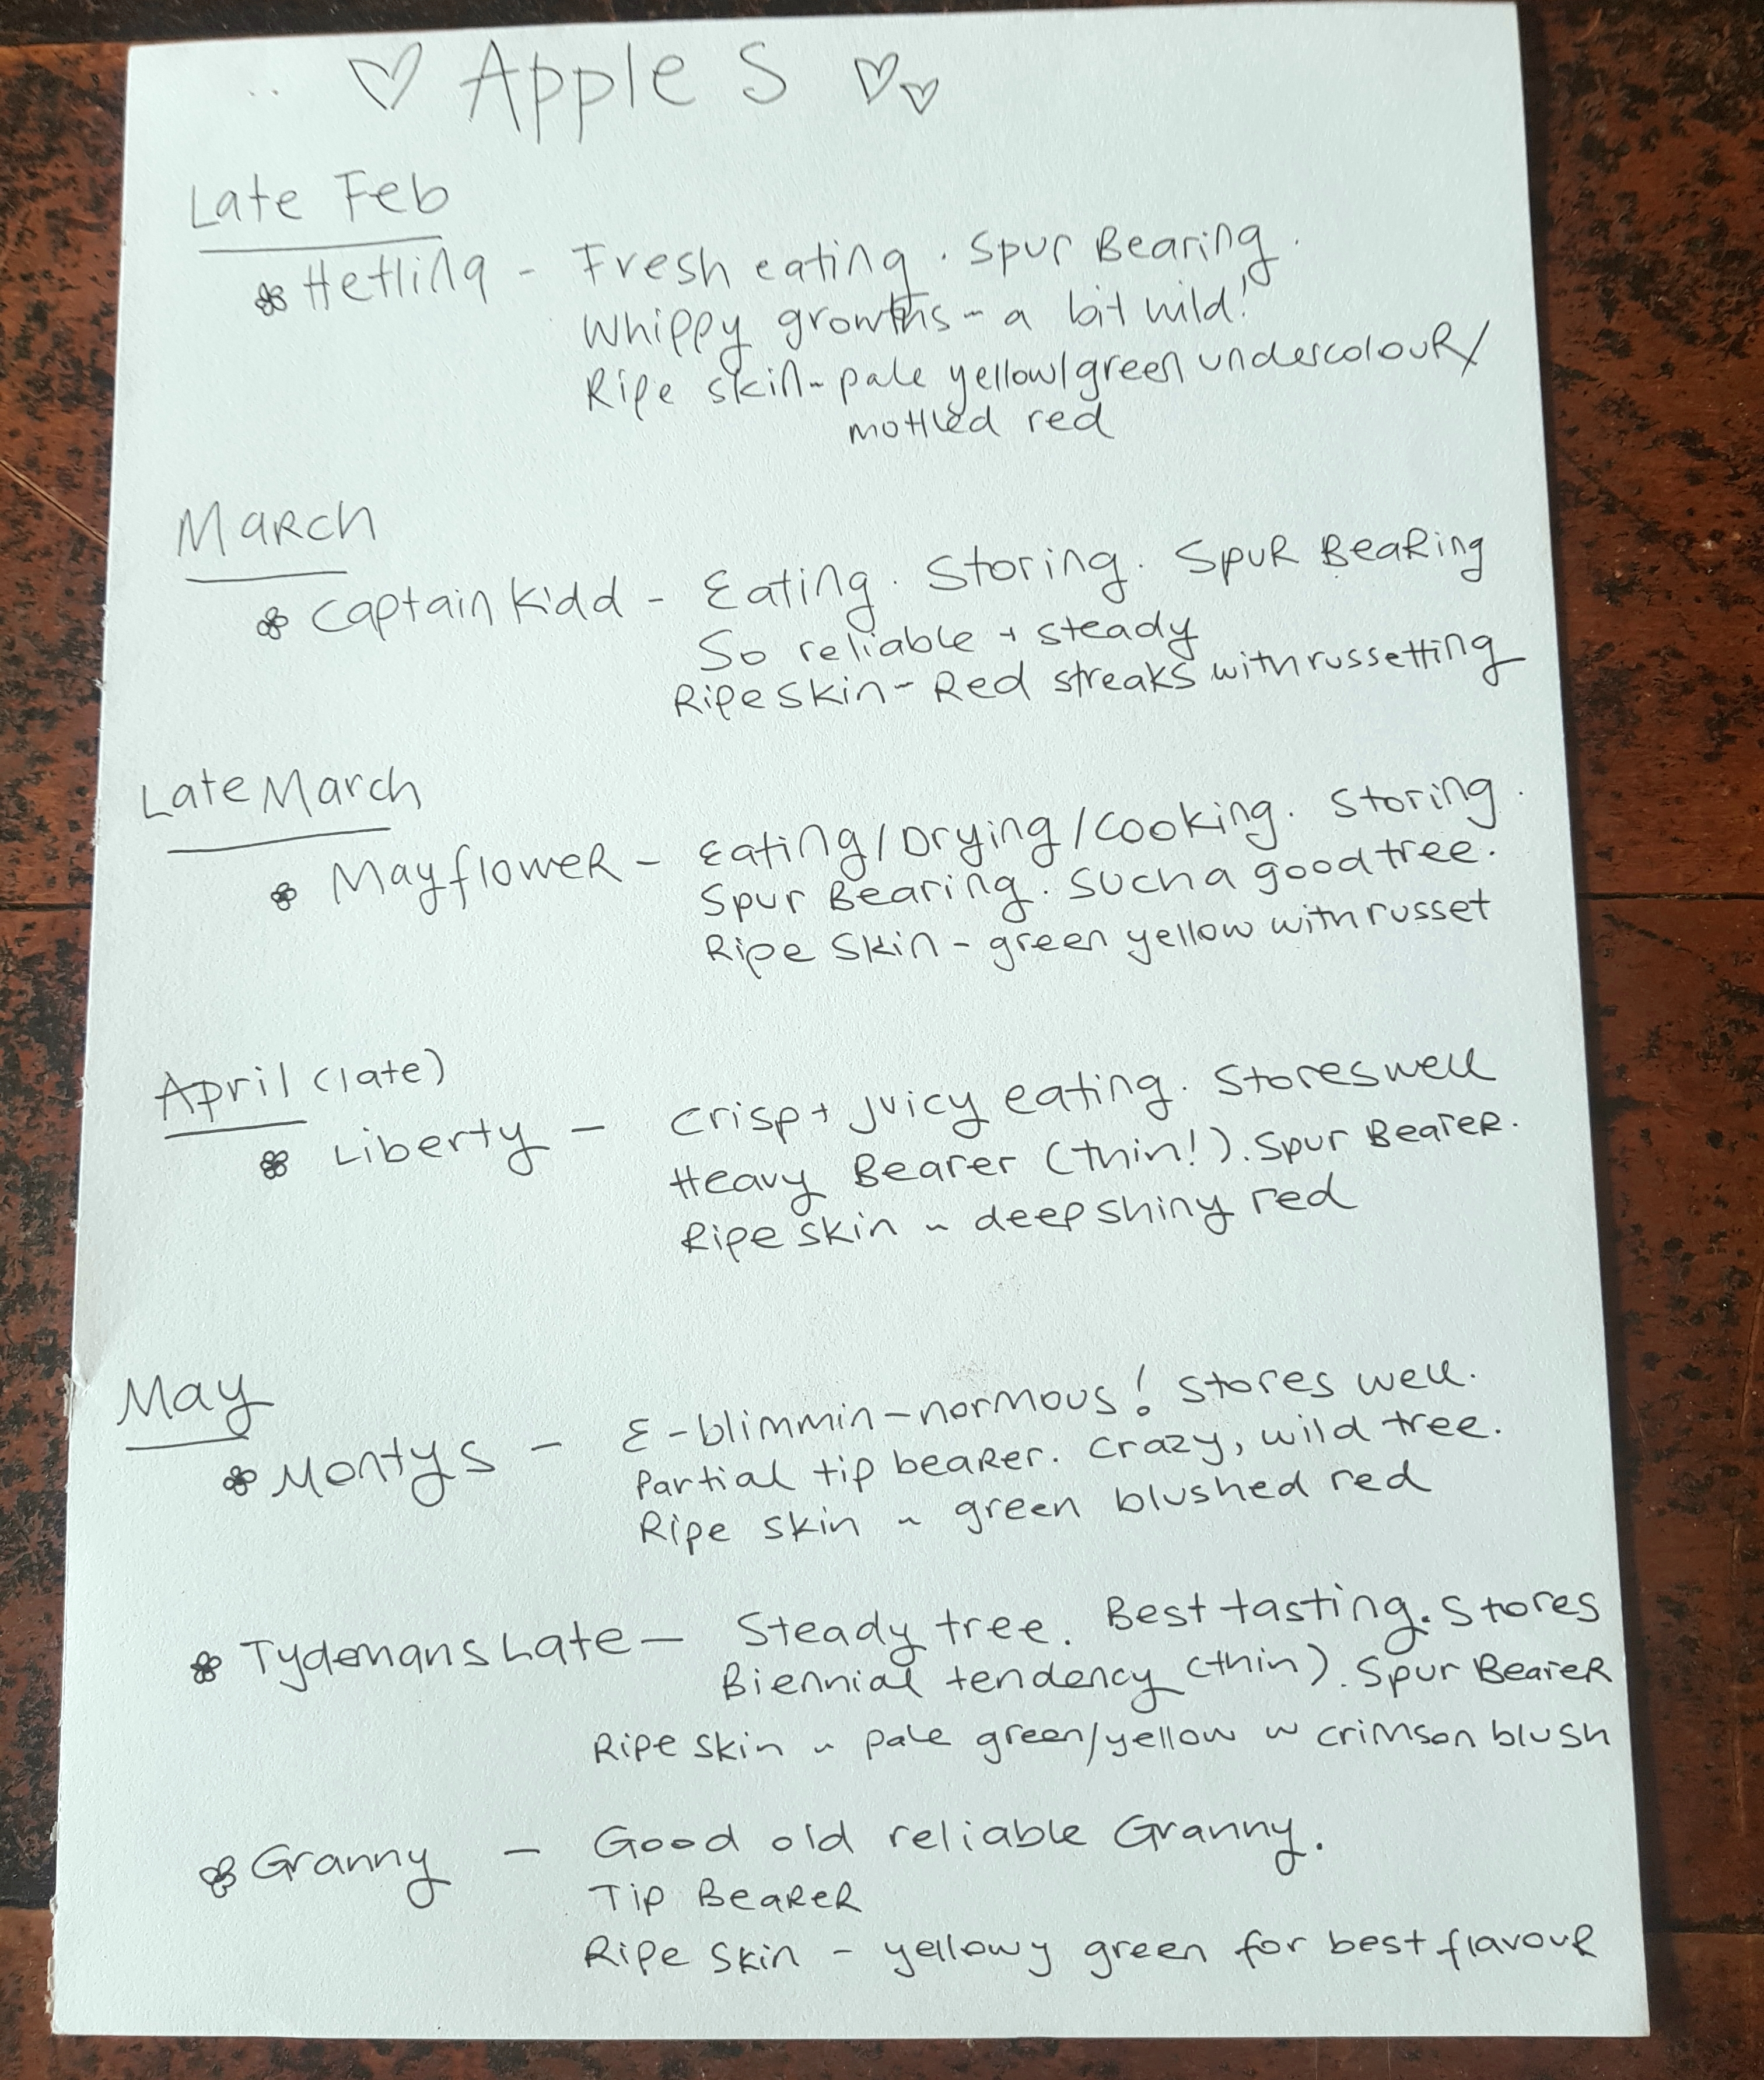 Apples
Late Feb
Hetlina - Fresh eating. Spur Bearing.
Whippy growths - a bit wild!
Ripe skin - pale yellow/green undercolour/
mottled red
March
Captain Kidd - Eating. Storing. Spur Bearing
So reliable + steady
Ripe skin - Red streaks with russetting
Late March
Mayflower - Eating/Drying/Cooking. Storing.
Spur Bearing. Such a good tree.
Ripe Skin - green yellow with russet
April (late)
Liberty - Crisp + juicy eating. Stores well
Heavy Bearer (thin!). Spur Bearer.
Ripe skin - deep shiny red
May
Montys - E-blimmin-normous! Stores well.
Partial tip bearer. Crazy, wild tree.
Ripe skin - green blushed red
Tydemans Late - Steady tree. Best tasting. Stores
Biennial tendency (thin). Spur Bearer
Ripe skin - pale green/yellow w crimson blush
Granny - Good old reliable Granny.
Tip Bearer
Ripe Skin - yellowy green for best flavour